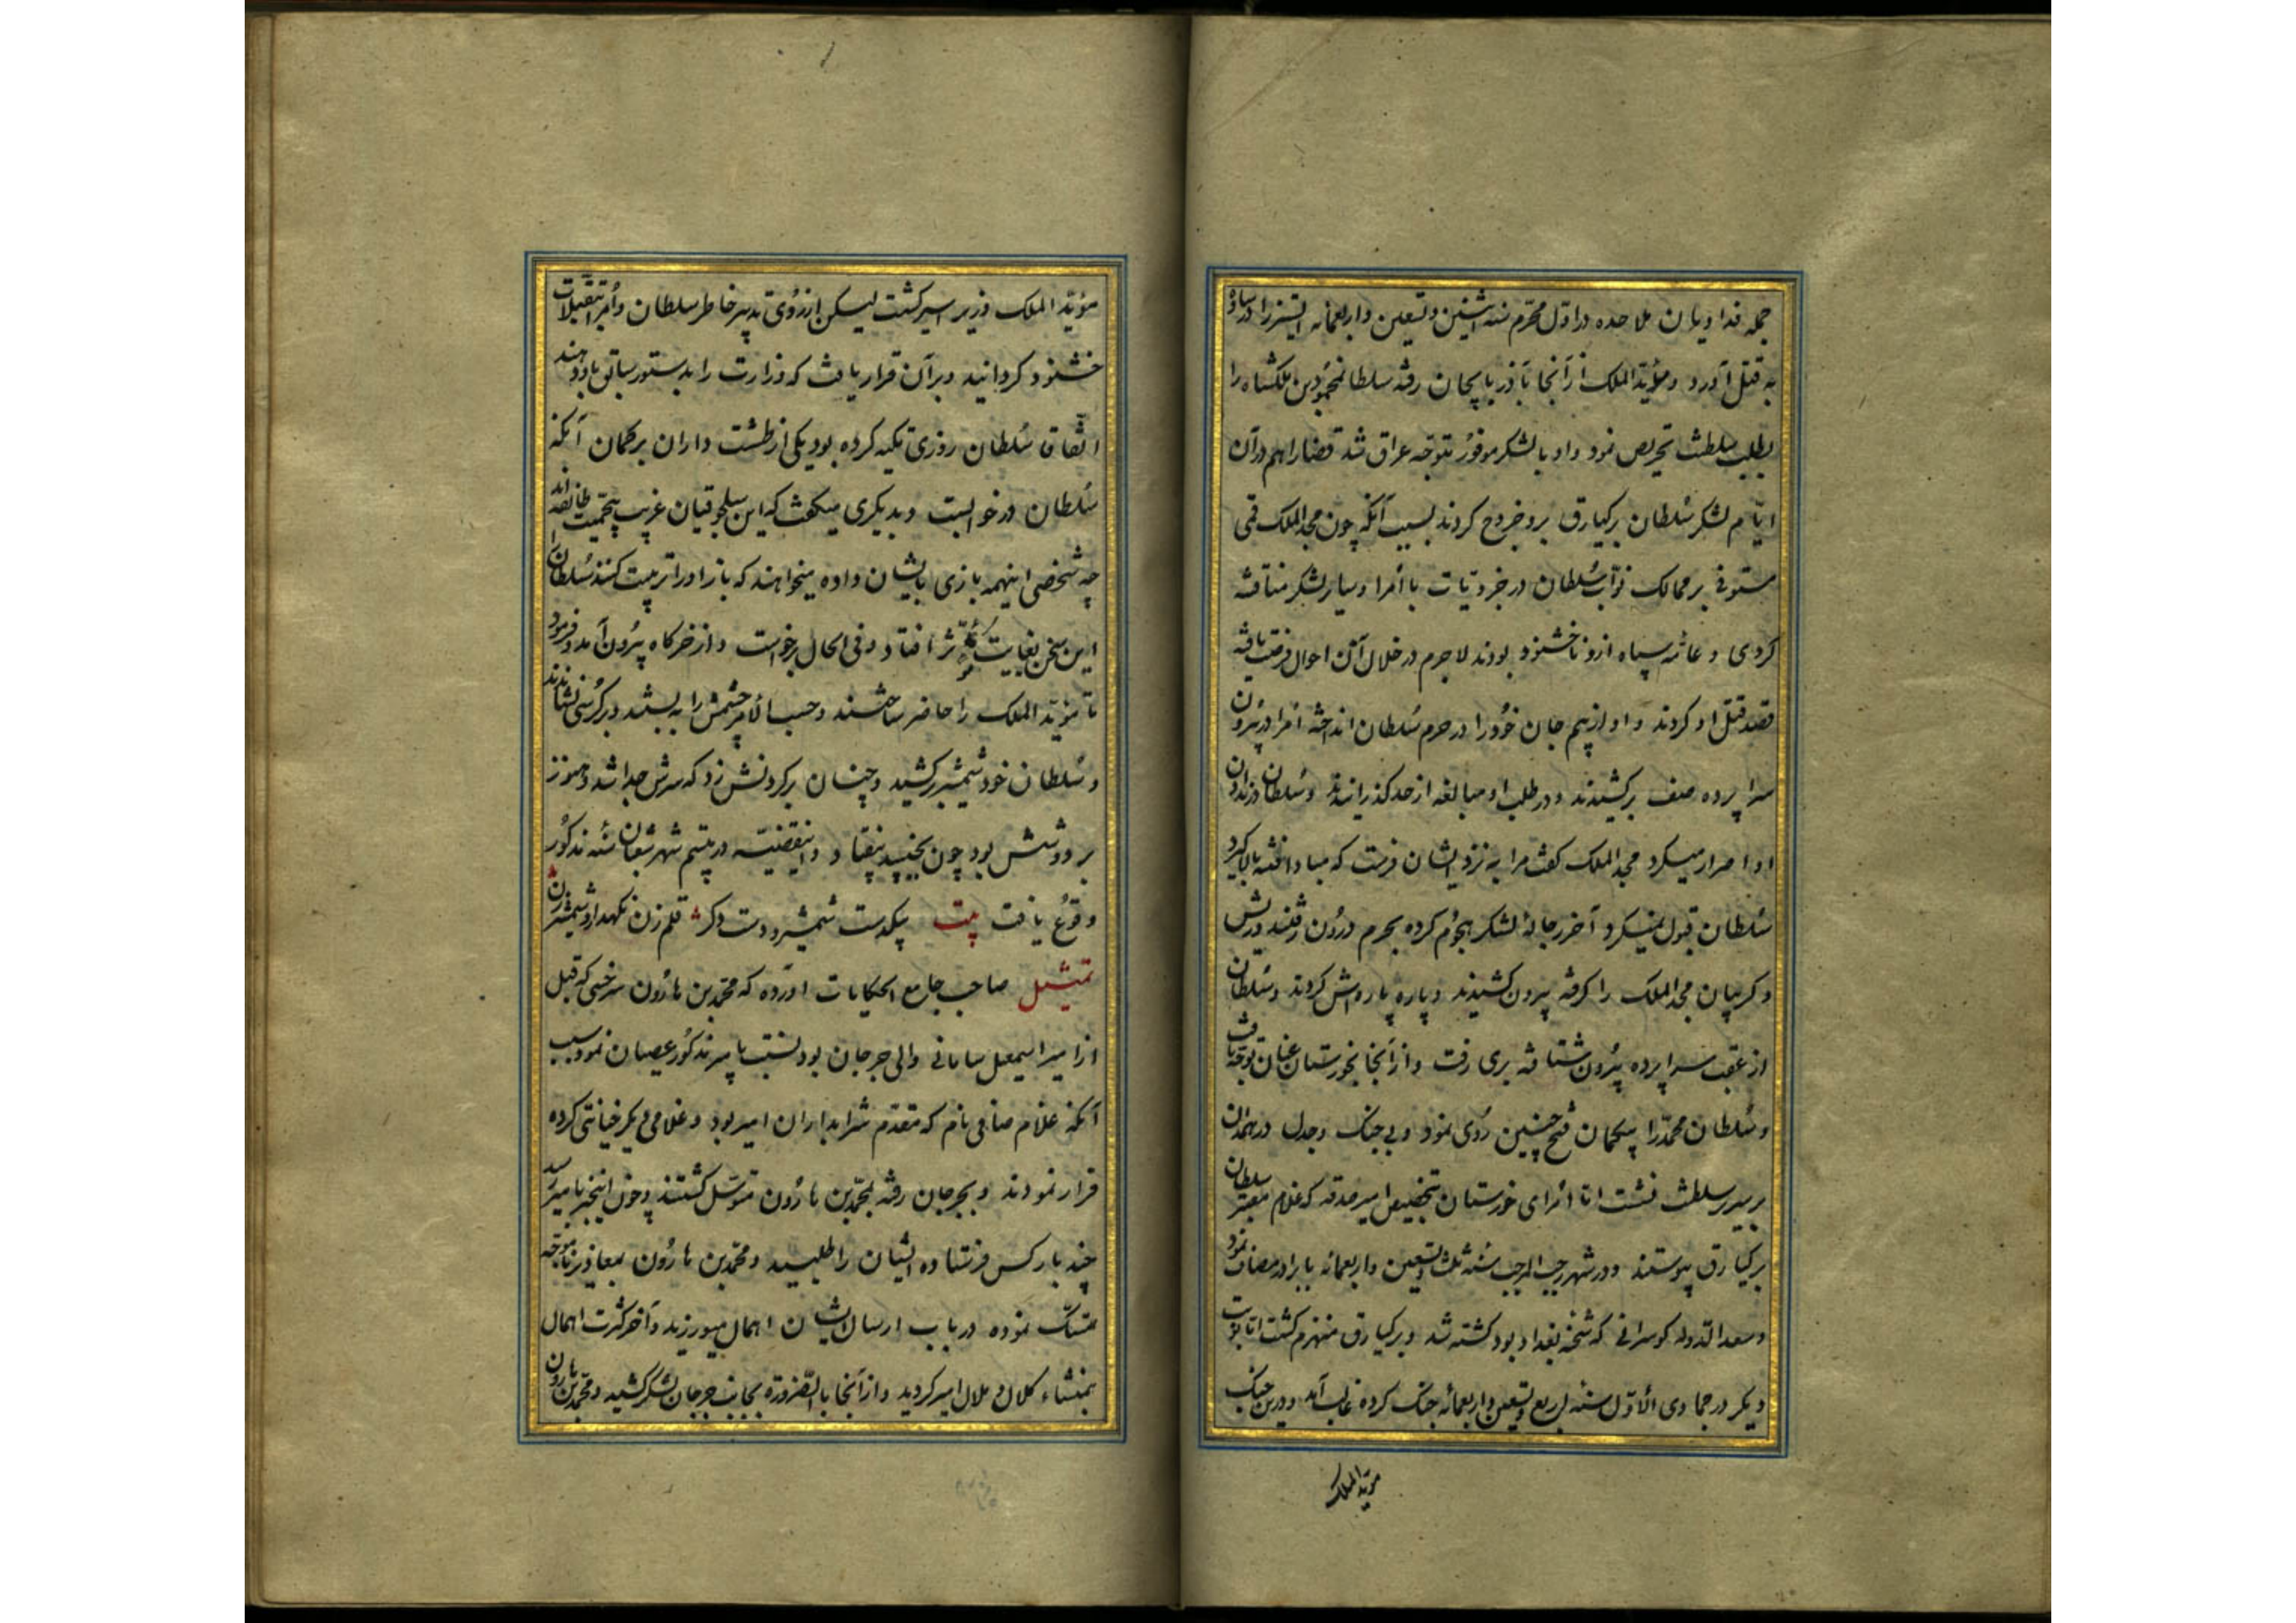 جمله فداویان ملاحده در اول محرم سنه اثنین و تسعین و اربعمائه انسز را در ساوه
به قتل آورد و مؤید الملک از آنجا بآذربایجان رفته سلطان محمد بن ملکشاه را
بطلب سلطنت تحریص نمود و او با لشکر موفور متوجه عراق شد قضا را هم در آن
ایام لشکر سلطان برکیارق برو خروج کردند بسبب آنکه چون مجد الملک قمی
مستوفی بر ممالک نواب سلطان در جزویات با امرا و سایر لشکر مناقشه
کردی و عامه سپاه ازو ناخشنود بودند لاجرم در خلال آن احوال فرصت یافته
قصد قتل او کردند و او از بیم جان خود را در حرم سلطان انداخته امرا در بیرون
سراپرده صف برکشیدند و در طلب او مبالغه از حد گذرانیدند و سلطان در ندادن
او اصرار میکرد مجد الملک کفت مرا به نزد ایشان فرست که مبادا فتنه بالا کیرد
سلطان قبول نمیکرد آخر رجاله لشکر هجوم کرده بحرم درون رفتند و ریش
و کریبان مجد الملک را کرفته بیرون کشیدند و پاره پاره اش کردند و سلطان
از عقب سراپرده بیرون شتافته بری رفت و از آنجا بخوزستان عنان توجه تافت
و سلطان محمد را بیکمان فتح چنین روی نمود و بی جنک و جدل در همدان
بر سریر سلطنت نشست اما امرای خوزستان بتخصیص امیر صدقه که غلام معتبر سلطان
برکیارق پیوستند و در شهر رجب المرجب سنه ثلث و تسعین و اربعمائه با برادر مصاف نمود
و سعد الدوله کوهرائی که شحنه بغداد بود کشته شد و برکیارق منهزم کشت اما نوبت
دیکر در جمادی الاول سنه اربع و تسعین و اربعمائه جنک کرده غالب آمد و درین جنک
مؤید الملک
مؤید الملک وزیر اسیر کشت لیکن از روی تدبیر خاطر سلطان و امرا بتقبلات
خشنود کردانید و بر آن قرار یافت که وزارت را بدستور سابق باو دهند
اتفاقا سلطان روزی تکیه کرده بود یکی از طشت داران بر کمان آنکه
سلطان در خوابست و بدیکری میکفت که این سلجوقیان غریب بیحمیت طائفه اند
چه شخصی اینهمه بازی بایشان داده میخواهند که باز او را تربیت کنند سلطان را
این سخن بغایت مؤثر افتاد و فی الحال برخواست و از خرکاه بیرون آمد و فرمود
تا مؤید الملک را حاضر ساختند و حسب الامر چشمش را به بستند و بر کرسی نشاندند
و سلطان خود شمشیر برکشید و چنان بر کردنش زد که سرش جدا شد و هنوز
بر دوشش بود چون بجنبید بیفتاد و اینقضیه در بیستم شهر شعبان سنه مذکور
وقوع یافت بیت بیکدست شمشیر و دست دکر قلم زن نکهدار و شمشیر زن
تمثیل صاحب جامع الحکایات آورده که محمد بن هارون سرخسی که قبل
از امیر اسمعیل سامانی والی جرجان بود نسبت بامیر مذکور عصیان نمود سبب
آنکه غلام صافی نام که مقدم شرابداران امیر بود و غلامی دیکر خیانتی کرده
فرار نمودند و بجرجان رفته بمحمد بن هارون متوسل کشتند و چون اینخبر بامیر رسید
چند بار کس فرستاده ایشان را طلبید و محمد بن هارون بمعاذیر ناموجه
متمسک نموده در باب ارسال ایشان اهمال میورزید و آخر کثرت اهمال
بمنشاء کلال و ملال امیر کردید و از آنجا بالضروره بجانب جرجان لشکر کشید و محمد بن هارون